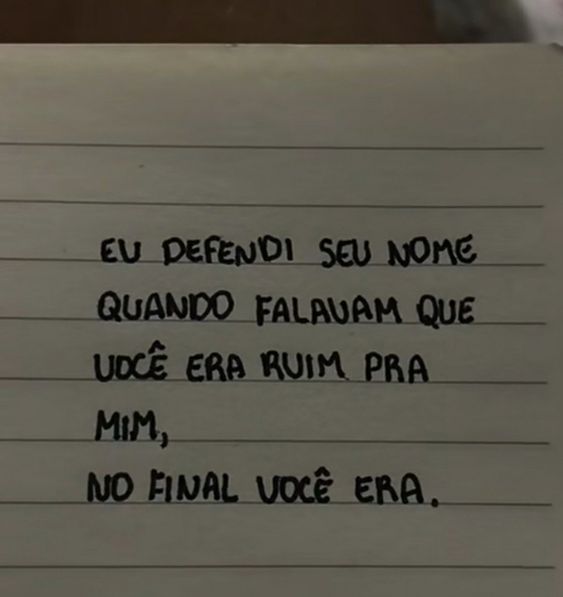 EU DEFENDI SEU NOME
QUANDO FALAVAM QUE
VOCÊ ERA RUIM PRA
MIM,
NO FINAL VOCÊ ERA.